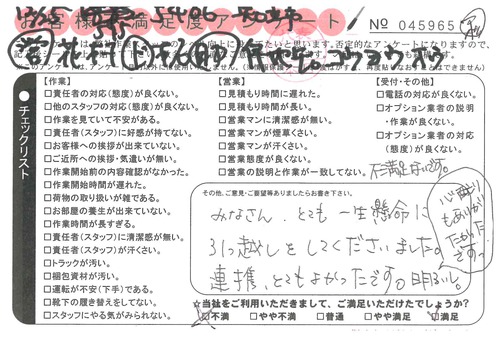 お客様満足度アンケート
No 045965
チェックリスト
【作業】
□責任者の対応(態度)が良くない。
□他のスタッフの対応(態度)が良くない。
□作業を見ていて不安がある。
□責任者(スタッフ)に好感が持てない。
□お客様への挨拶が出来ていない。
□ご近所への挨拶・気遣いが無い。
□作業開始前の内容確認がなかった。
□作業開始時間が遅れた。
□荷物の取り扱いが雑である。
□お部屋の養生が出来ていない。
□作業時間が長すぎる。
□責任者(スタッフ)に清潔感が無い。
□責任者(スタッフ)が汗くさい。
□トラックが汚い。
□梱包資材が汚い。
□運転が不安(下手)である。
□靴下の履き替えをしてない。
□スタッフにやる気がみられない。
【営業】
□見積もり時間に遅れた。
□見積もり時間が長い。
□営業マンに清潔感が無い。
□営業マンが煙草くさい。
□営業マンが汗くさい。
□営業態度が良くない。
□営業の説明と作業が一致してない。
【受付・その他】
□電話の対応が良くない。
□オプション業者の説明
・作業が良くない。
□オプション業者の対応
(態度)が良くない。
不満足ないです。
その他、ご意見・ご要望等ありましたらお書き下さい。
みなさん、とても一生懸命に
引っ越しをしてくださいました。
連携、とてもよかったです。明るいし。
心配りも
ありがたかったです
☆当社をご利用いただきまして、ご満足いただけたでしょうか?
□不満 □やや不満 □普通 □やや満足 □満足